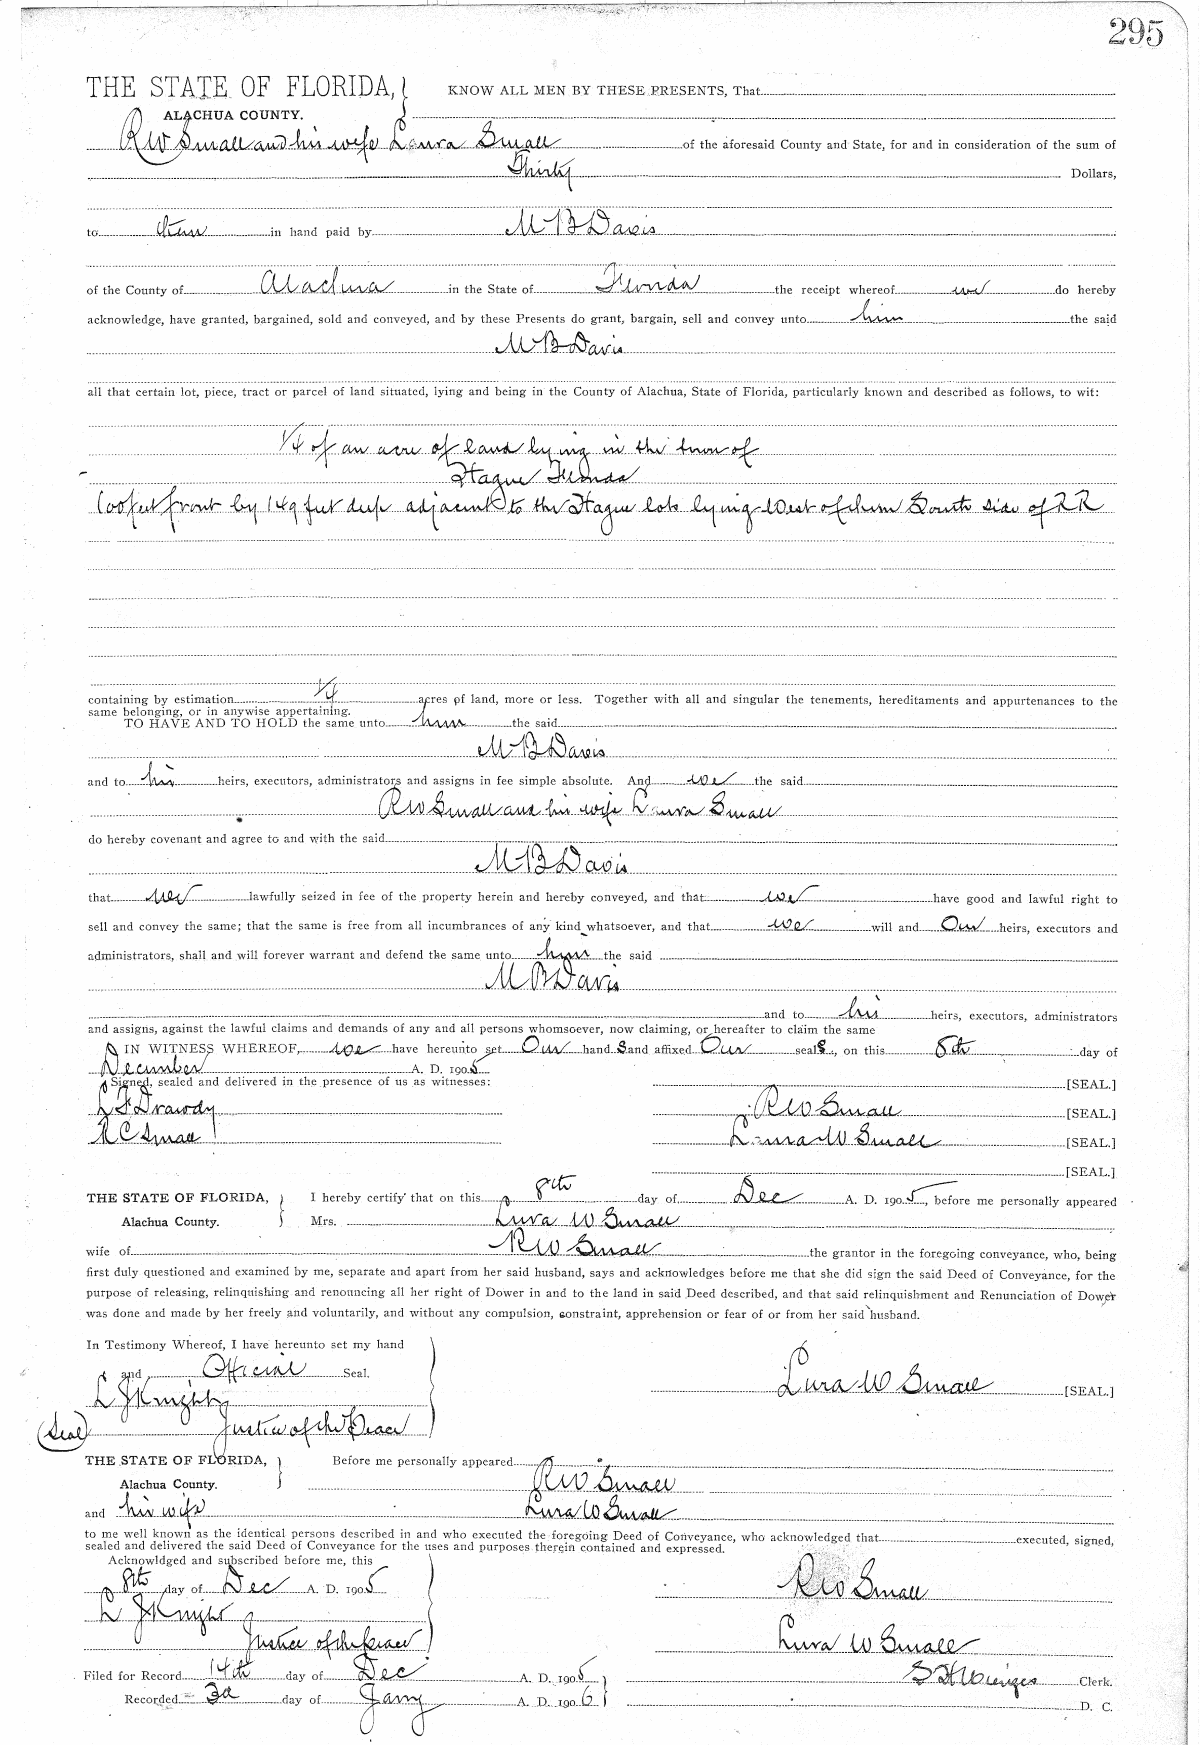 295
THE STATE OF FLORIDA, KNOW ALL MEN BY THESE PRESENTS, That
ALACHUA COUNTY.
RW Small and his wife Laura Small of the aforesaid County and State, for and in consideration of the sum of
Thirty Dollars,
to them in hand paid by M B Davis
of the County of Alachua in the State of Florida the receipt whereof we do hereby
acknowledge, have granted, bargained, sold and conveyed, and by these Presents do grant, bargain, sell and convey unto him the said
M B Davis
all that certain lot, piece, tract or parcel of land situated, lying and being in the County of Alachua, State of Florida, particularly known and described as follows, to wit:
1/4 of an acre of land lying in the town of
Hague Florida
100 feet front by 149 feet deep adjacent to the Hague lots lying West of them South side of RR
containing by estimation 1/4 acres of land, more or less. Together with all and singular the tenements, hereditaments and appurtenances to the
same belonging, or in anywise appertaining.
TO HAVE AND TO HOLD the same unto him the said
M B Davis
and to his heirs, executors, administrators and assigns in fee simple absolute. And we the said
RW Small and his wife Laura Small
do hereby covenant and agree to and with the said
M B Davis
that we lawfully seized in fee of the property herein and hereby conveyed, and that we have good and lawful right to
sell and convey the same; that the same is free from all incumbrances of any kind whatsoever, and that we will and Our heirs, executors and
administrators, shall and will forever warrant and defend the same unto him the said
M B Davis
and to his heirs, executors, administrators
and assigns, against the lawful claims and demands of any and all persons whomsoever, now claiming, or hereafter to claim the same
IN WITNESS WHEREOF, we have hereunto set Our hand s and affixed Our seal s, on this 8th day of
December A. D. 1905
Signed, sealed and delivered in the presence of us as witnesses: [SEAL.]
L F Drawdy RW Small [SEAL.]
R C Small Laura W Small [SEAL.]
[SEAL.]
THE STATE OF FLORIDA, I hereby certify that on this 8th day of Dec A. D. 1905, before me personally appeared
Alachua County. Mrs. Lura W Small
wife of RW Small the grantor in the foregoing conveyance, who, being
first duly questioned and examined by me, separate and apart from her said husband, says and acknowledges before me that she did sign the said Deed of Conveyance, for the
purpose of releasing, relinquishing and renouncing all her right of Dower in and to the land in said Deed described, and that said relinquishment and Renunciation of Dower
was done and made by her freely and voluntarily, and without any compulsion, constraint, apprehension or fear of or from her said husband.
In Testimony Whereof, I have hereunto set my hand
and Official Seal. Lura W Small [SEAL.]
L J Knight
(Seal) Justice of the Peace
THE STATE OF FLORIDA, Before me personally appeared
Alachua County. RW Small
and his wife Lura W Small
to me well known as the identical persons described in and who executed the foregoing Deed of Conveyance, who acknowledged that executed, signed,
sealed and delivered the said Deed of Conveyance for the uses and purposes therein contained and expressed.
Acknowldged and subscribed before me, this
8th day of Dec A. D. 1905 RW Small
L J Knight
Justice of the Peace Lura W Small
Filed for Record 14th day of Dec A. D. 1905 S H Wienges Clerk.
Recorded 3d day of Jany A. D. 1906 D. C.